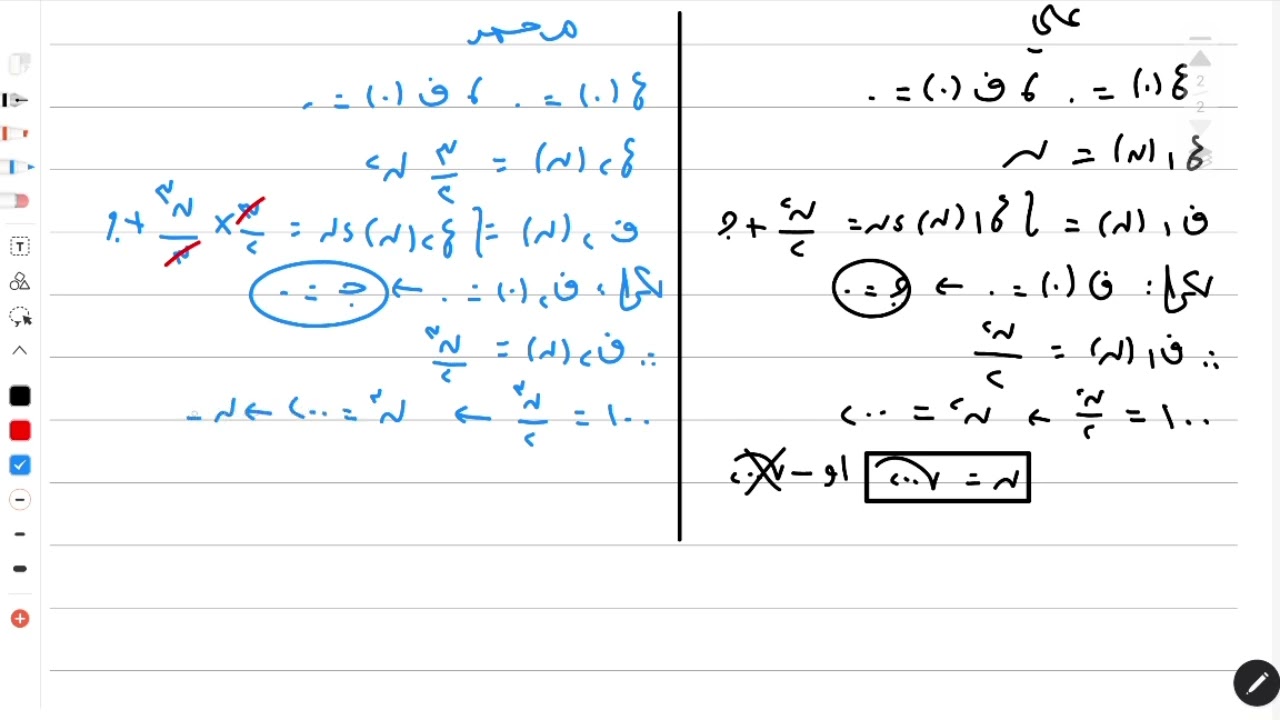 علي
ع(٠) = ٠ ، ف(٠) = ٠
ع١(ن) = ن
ف١(ن) = ∫ ع١(ن) ءن = ن٢/٢ + جـ
لكن : ف(٠) = ٠ ← جـ = ٠
∴ ف١(ن) = ن٢/٢
١٠٠ = ن٢/٢ ← ن٢ = ٢٠٠
ن = √٢٠٠ او -√٢٠٠
محمد
ع(٠) = ٠ ، ف(٠) = ٠
ع٢(ن) = ٣/٢ ن٢
ف٢(ن) = ∫ ع٢(ن) ءن = ٣/٢ × ن٣/٣ + جـ
لكن : ف٢(٠) = ٠ ← جـ = ٠
∴ ف٢(ن) = ن٣/٢
١٠٠ = ن٣/٢ ← ن٣ = ٢٠٠ ← ن =
2
2
T